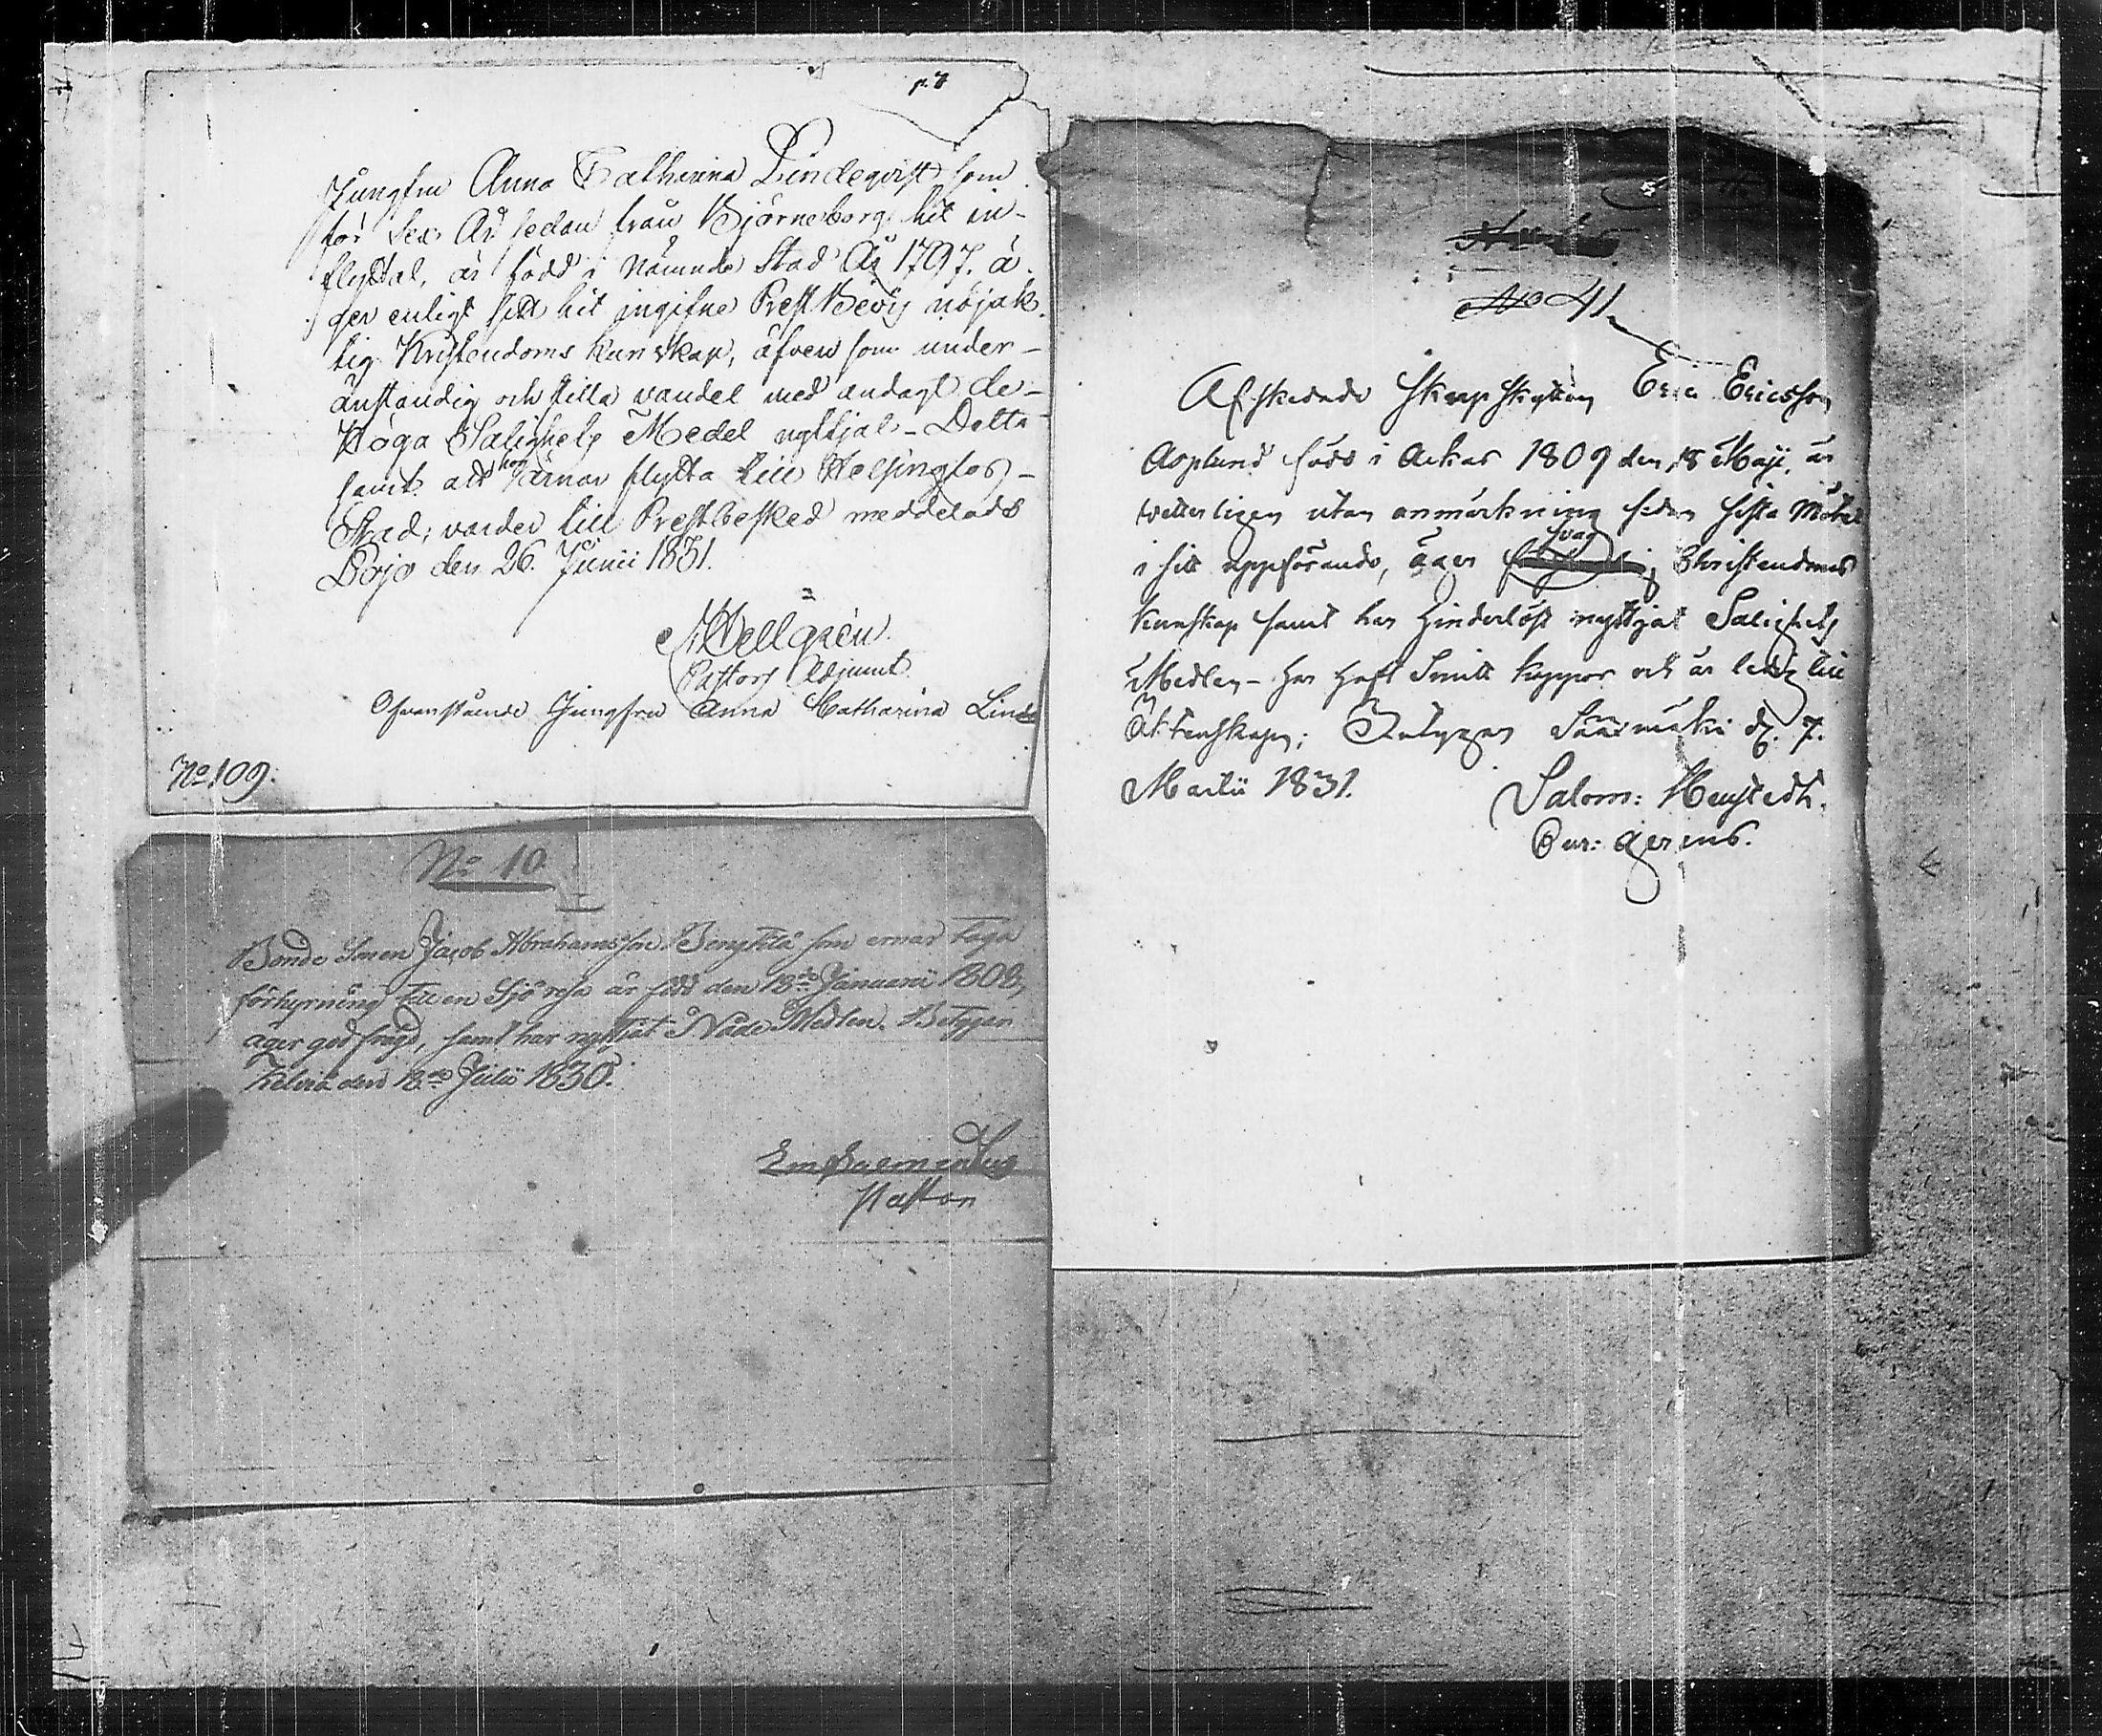 p. 7
Jungfru Anna Catharina Lindeqvist som
för Sex År sedan från Björneborg hit in-
flyttat, är född i nämnde Stad År 1797. ä-
ger enligt sitt hit ingifne Prest Bevis nöjak-
tig Kristendoms kunskap, äfven som under
anständig och stilla vandel med andagt de
Höga Salighets Medel nyttjat - Detta
samt att hon ärnar flytta till Helsingfors
Stad; varder till Prestbesked meddelads
Lojo den 26. Junii 1831.
Hellgrén
Pastors Adjunct
Ofvanstående Jungfru Anna Catharina Linde
No 109.
No 10
Bonde Sonen Jacob Abrahamsson Bengtilä som ernar taga
förhyrning till en Sjö resa är född den 18de Januarii 1808,
äger god frägd, samt har nyttjat Nåde Medlen. Betygar
Kelviå den 18de Julii 1830.
Pastor
No 41
Afskedade Skarpskytten Eric Ericsson
Asplund född i Ackas 1809 den 18 Maji, är
wetterligen utan anmärkning sedan sista Mötet
i sitt uppförande, äger svag Christendoms
kunskap samt har hinderlöst nyttjat Salighets
Medlen - har haft Smitt koppor och är ledig till
Äktenskap; Intygar Säärmäki d. 7.
Martii 1831.
Salom:
Cur: gerens.